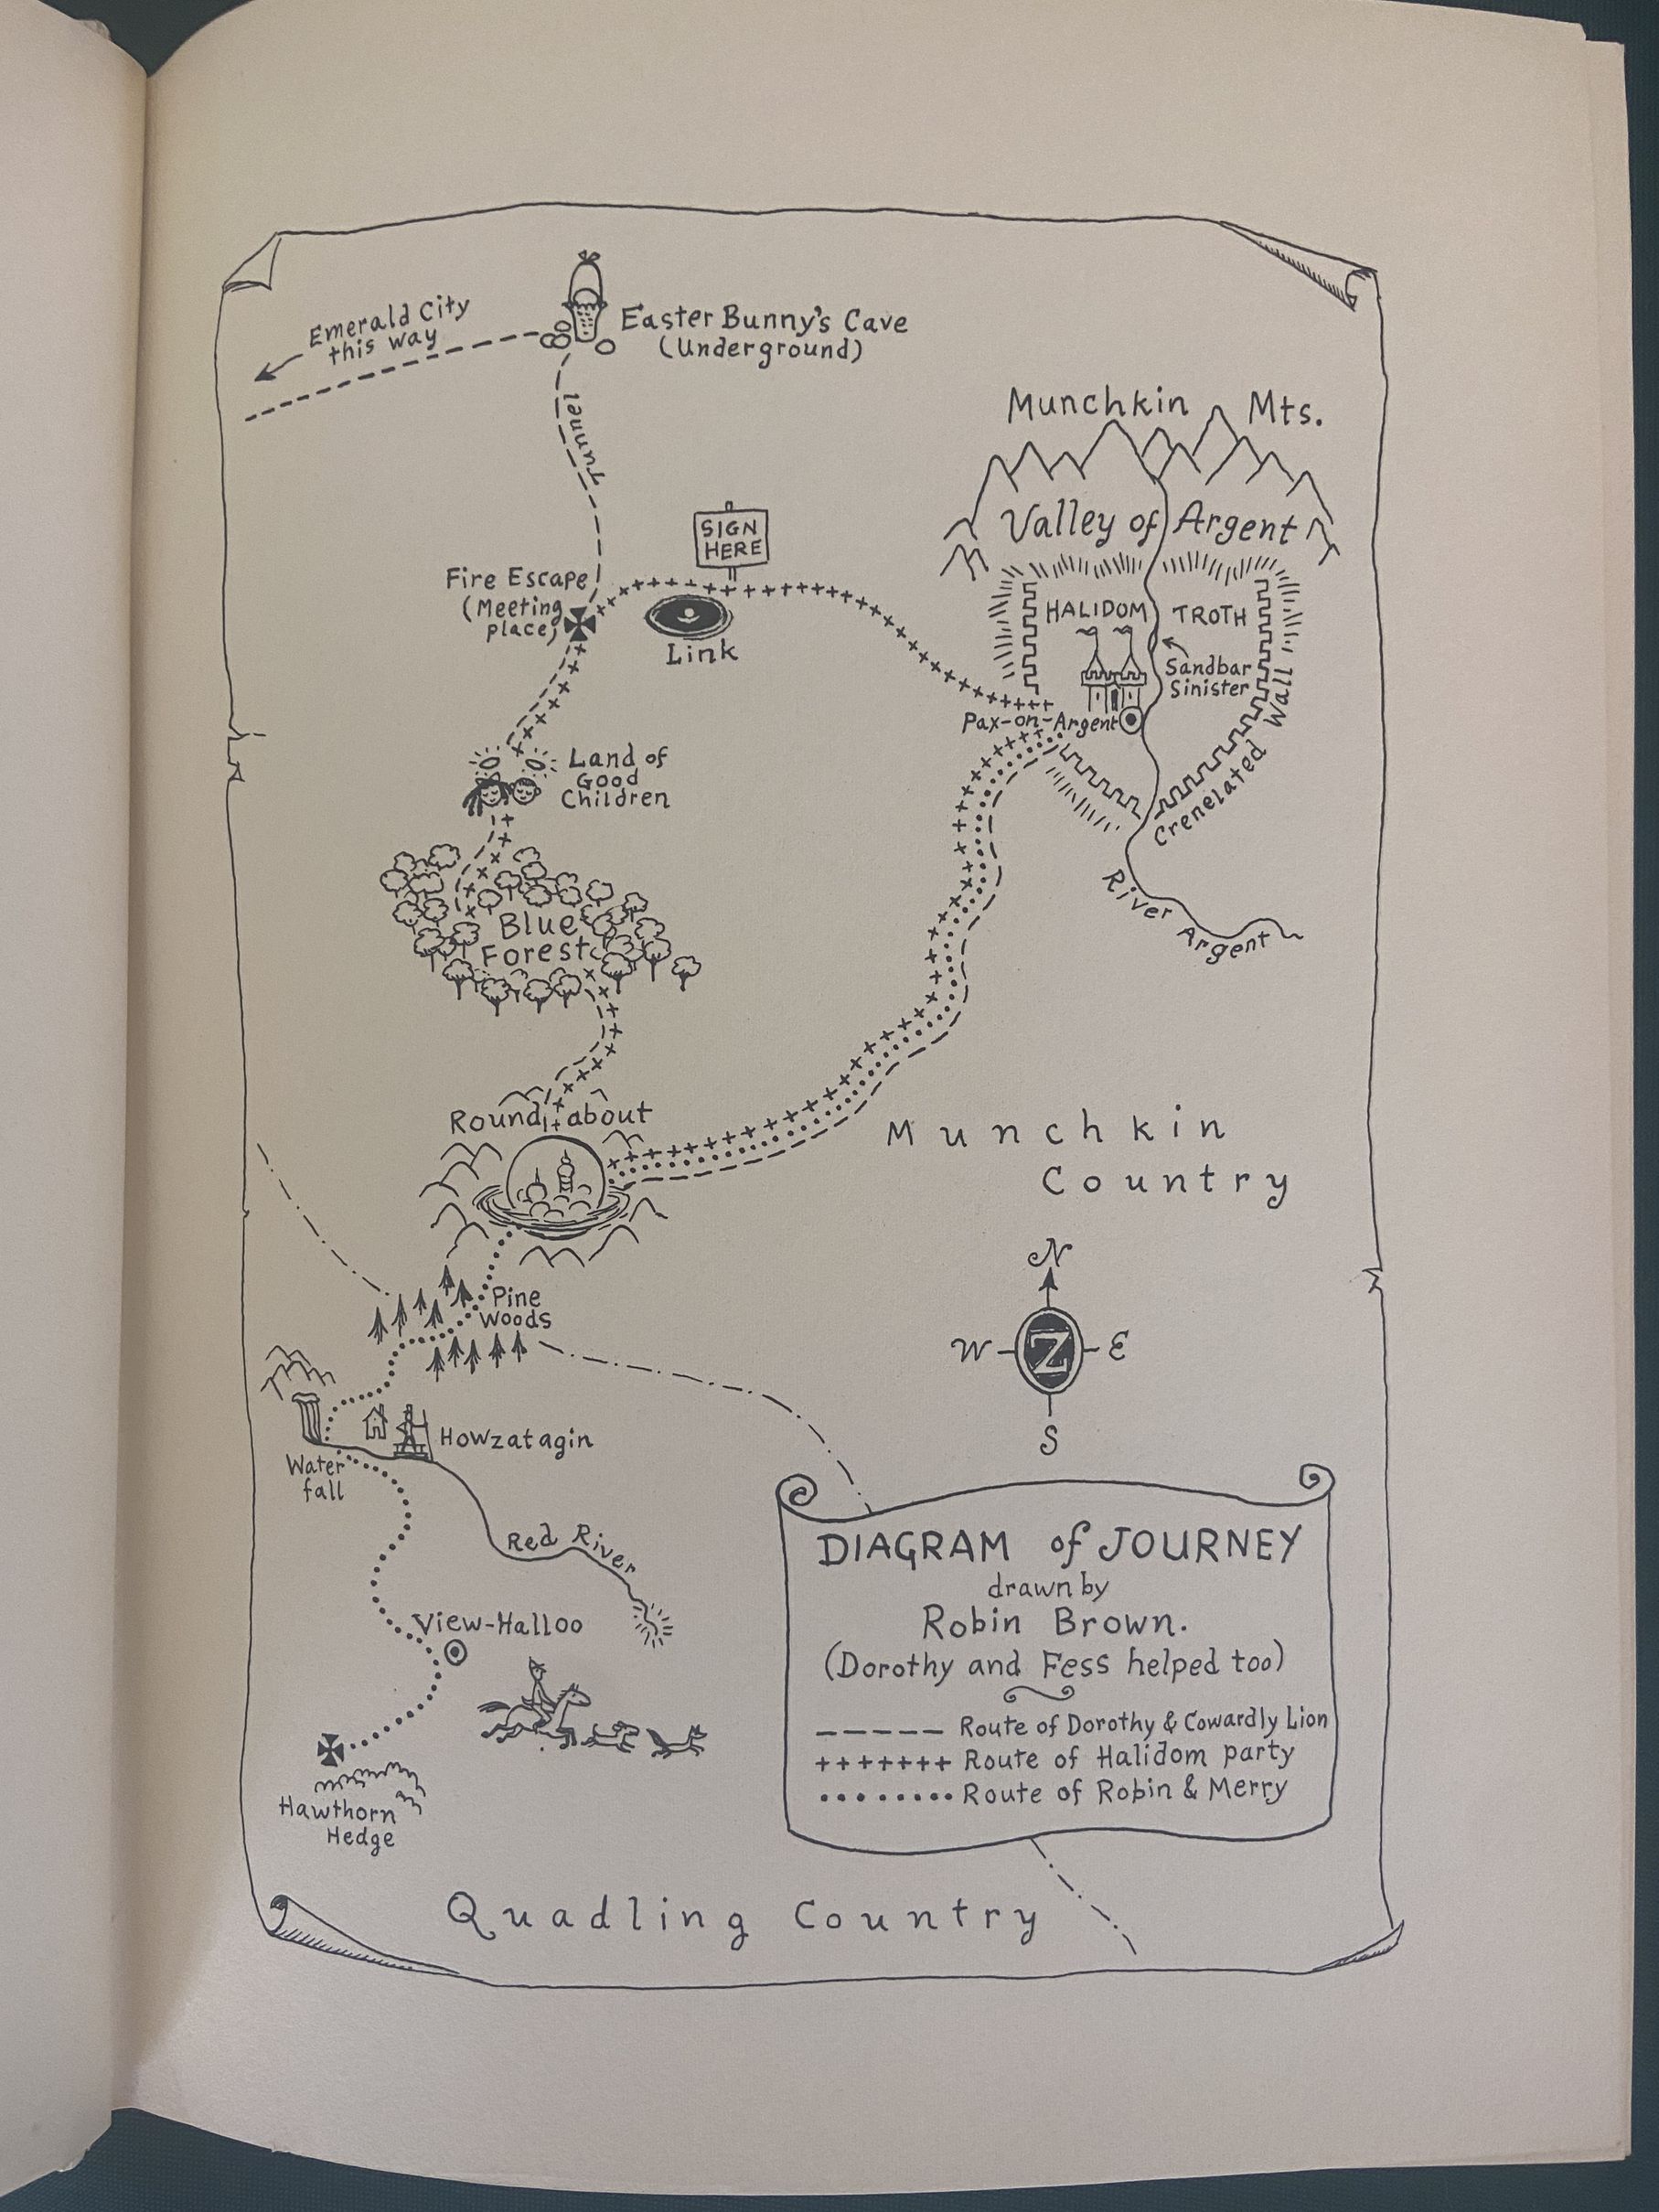 Emerald City
this way
Easter Bunny's Cave
(Underground)
Tunnel
Munchkin Mts.
Valley of Argent
SIGN
HERE
Fire Escape
(Meeting
place)
Link
HALIDOM
TROTH
Sandbar
Sinister
Pax-on-Argent
Crenelated Wall
River Argent
Land of
Good
Children
Blue
Forest
Roundabout
Munchkin
Country
N
W Z E
S
Pine
Woods
Howzatagin
Water
fall
Red River
View-Halloo
Hawthorn
Hedge
DIAGRAM of JOURNEY
drawn by
Robin Brown.
(Dorothy and Fess helped too)
Route of Dorothy & Cowardly Lion
Route of Halidom party
Route of Robin & Merry
Quadling Country